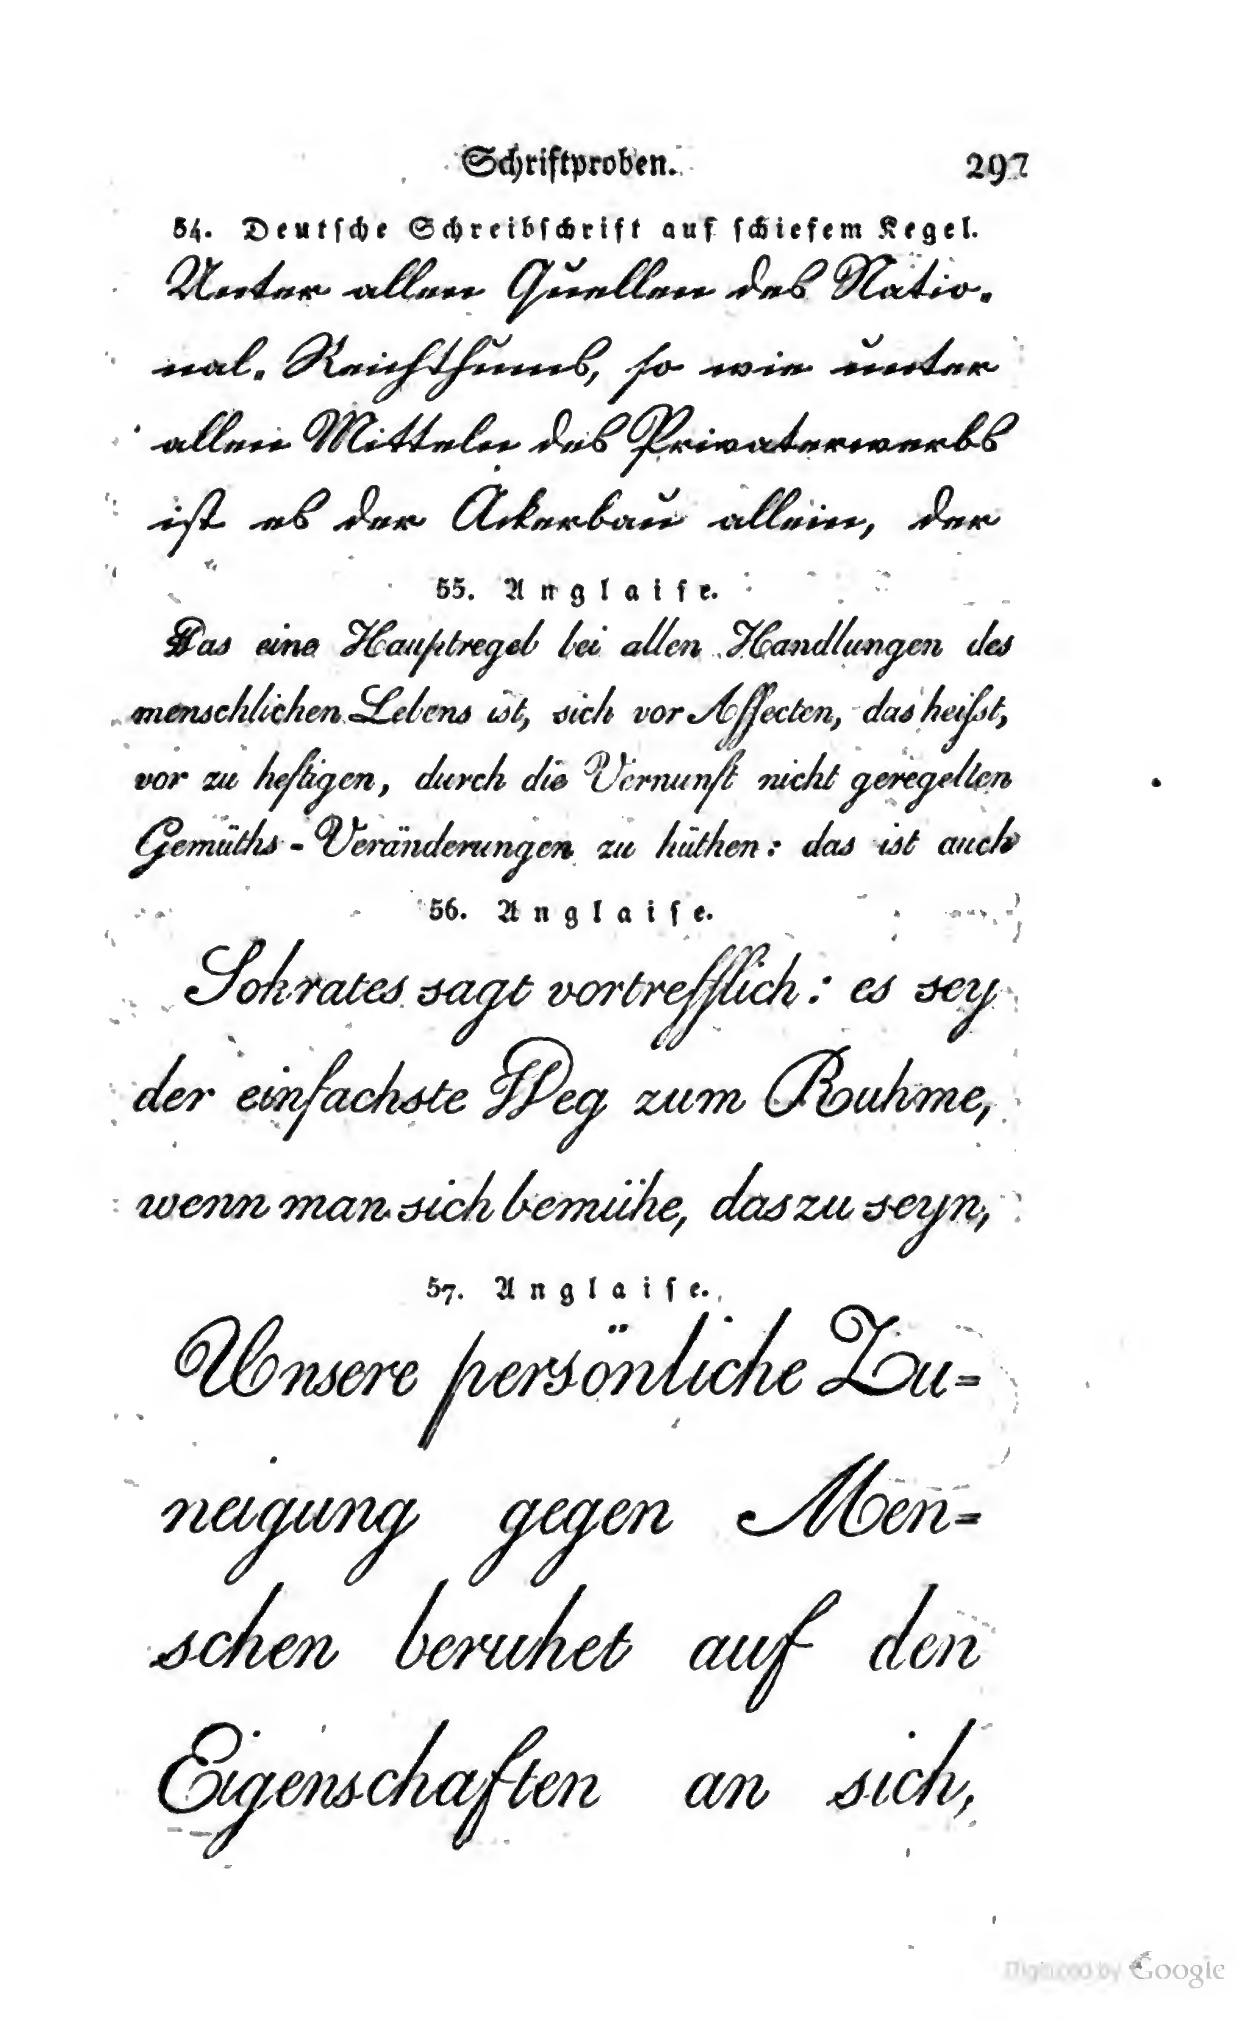 Schriftproben. 297
54. Deutsche Schreibschrift auf schiefem Kegel.
Unter allen Quellen des Natio-
nal-Reichthums, so wie unter
allen Mitteln des Privaterwerbs
ist es der Ackerbau allein, der
55. Anglaise.
Das eine Hauptregel bei allen Handlungen des
menschlichen Lebens ist, sich vor Affecten, das heißt,
vor zu heftigen, durch die Vernunft nicht geregelten
Gemüths-Veränderungen zu hüthen: das ist auch
56. Anglaise.
Sokrates sagt vortrefflich: es sey
der einfachste Weg zum Ruhme,
wenn man sich bemühe, das zu seyn,
57. Anglaise.
Unsere persönliche Zu-
neigung gegen Men-
schen beruhet auf den
Eigenschaften an sich,
Digitized by Google